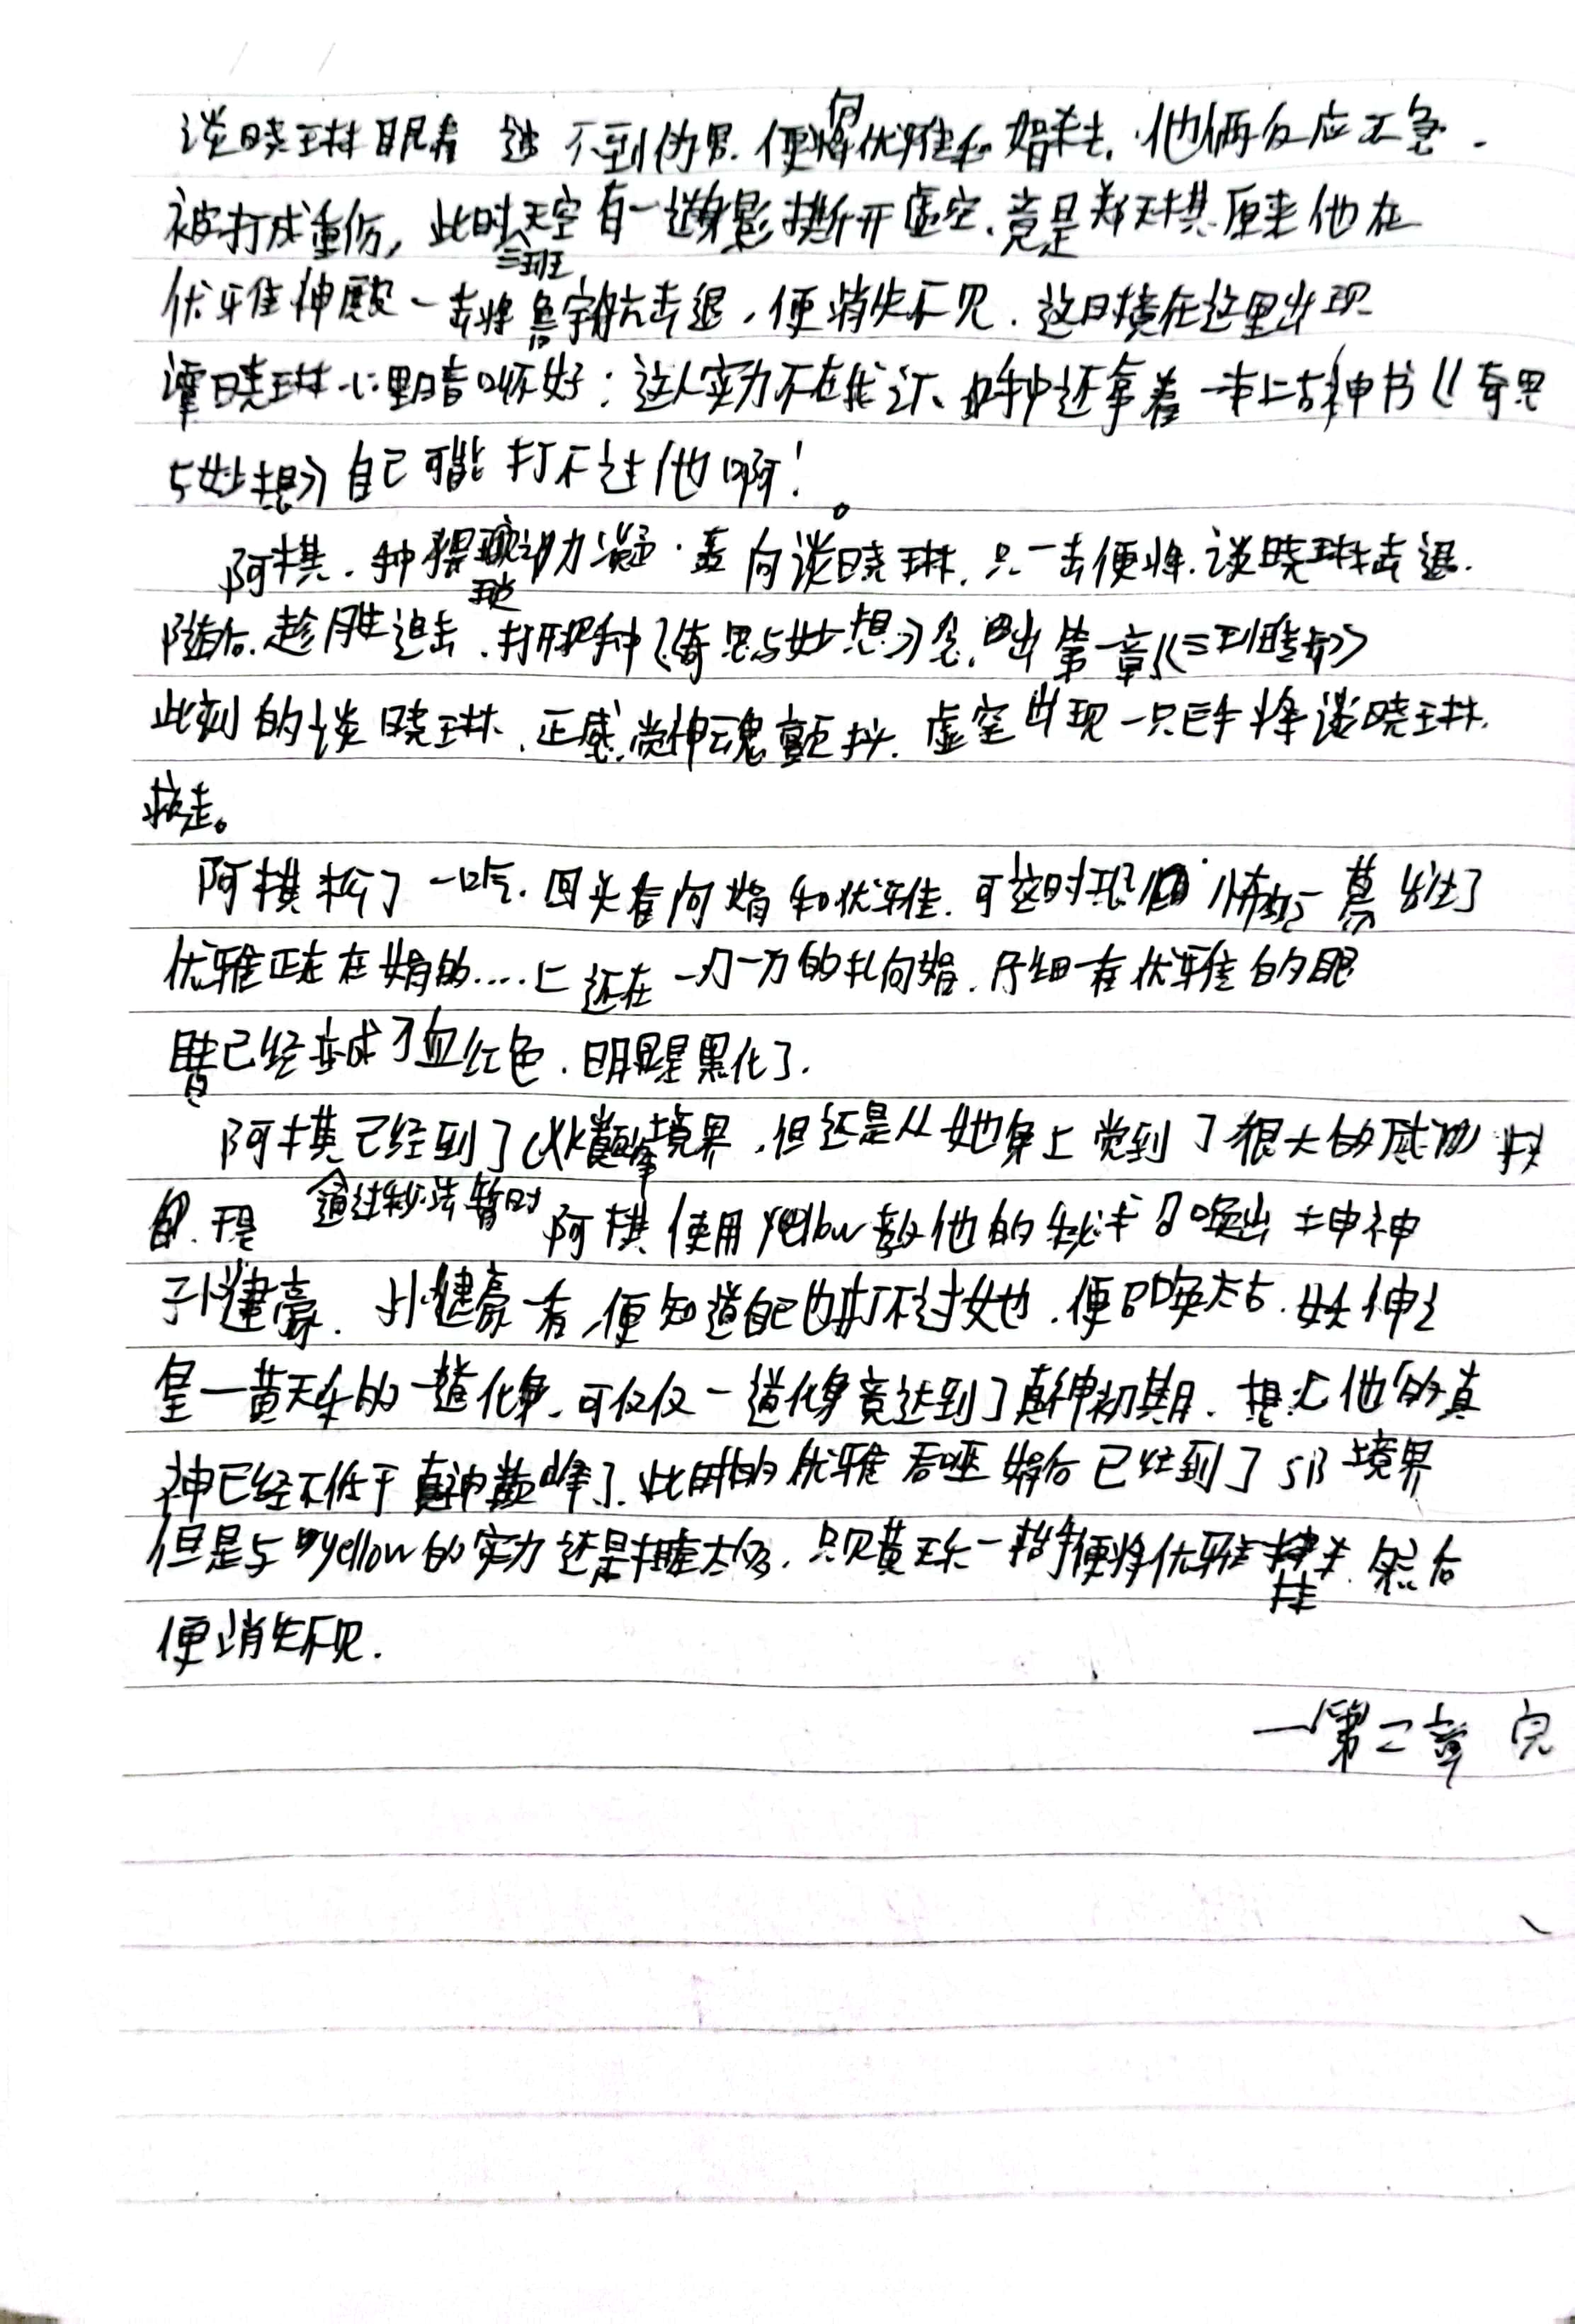 谈晓琳眼看 追不到伪男.便向优雅和娟杀去,他俩反应不急.
被打成重伤,此时天空有一道身影撕开虚空,竟是郑天棋.原来他在
三班
优雅神殿一击将鲁宇航击退,便消失不见.这时竟在这里出现
谭晓琳心里暗呼不好:这人实力不在我之下,手中还拿着一本上古神书《奇思
与妙想》自己可能打不过他啊!
阿棋.手中 动力 向谈晓琳,只一击便将.谈晓琳击退.
随后.趁胜追击.打开手中《奇思与妙想》念出第一章《三到
此刻的谈晓琳.正感觉神魂颤抖.虚空出现一只巨手将谈晓琳.
救走。
阿棋松了一口气.回头看向娟和优雅.可这时 怖的一幕发生了
优雅正在在娟的....上还在一刀一刀的扎向娟.仔细一看优雅的眼
睛已经变成了血红色.明显是黑化了.
阿棋已经到了 巅峰境界,但还是从她身上觉到了很大的威
通过秘法暂时
于是 阿棋使用yellow教他的秘术召唤出 神
孙健豪.孙健豪一看,便知道自己也打不过她.便召唤太古.妖神之
皇一黄天乐的一道化身.可仅仅一道化身竟达到了真神初期.想必他的真
神已经不低于真神巅峰了.此时的优雅吞噬娟后已经到了SB境界
但是与yellow的实力还是相差太多.只见黄天乐一抬手便将优雅 走.然后
便消失不见.
一第二章 完